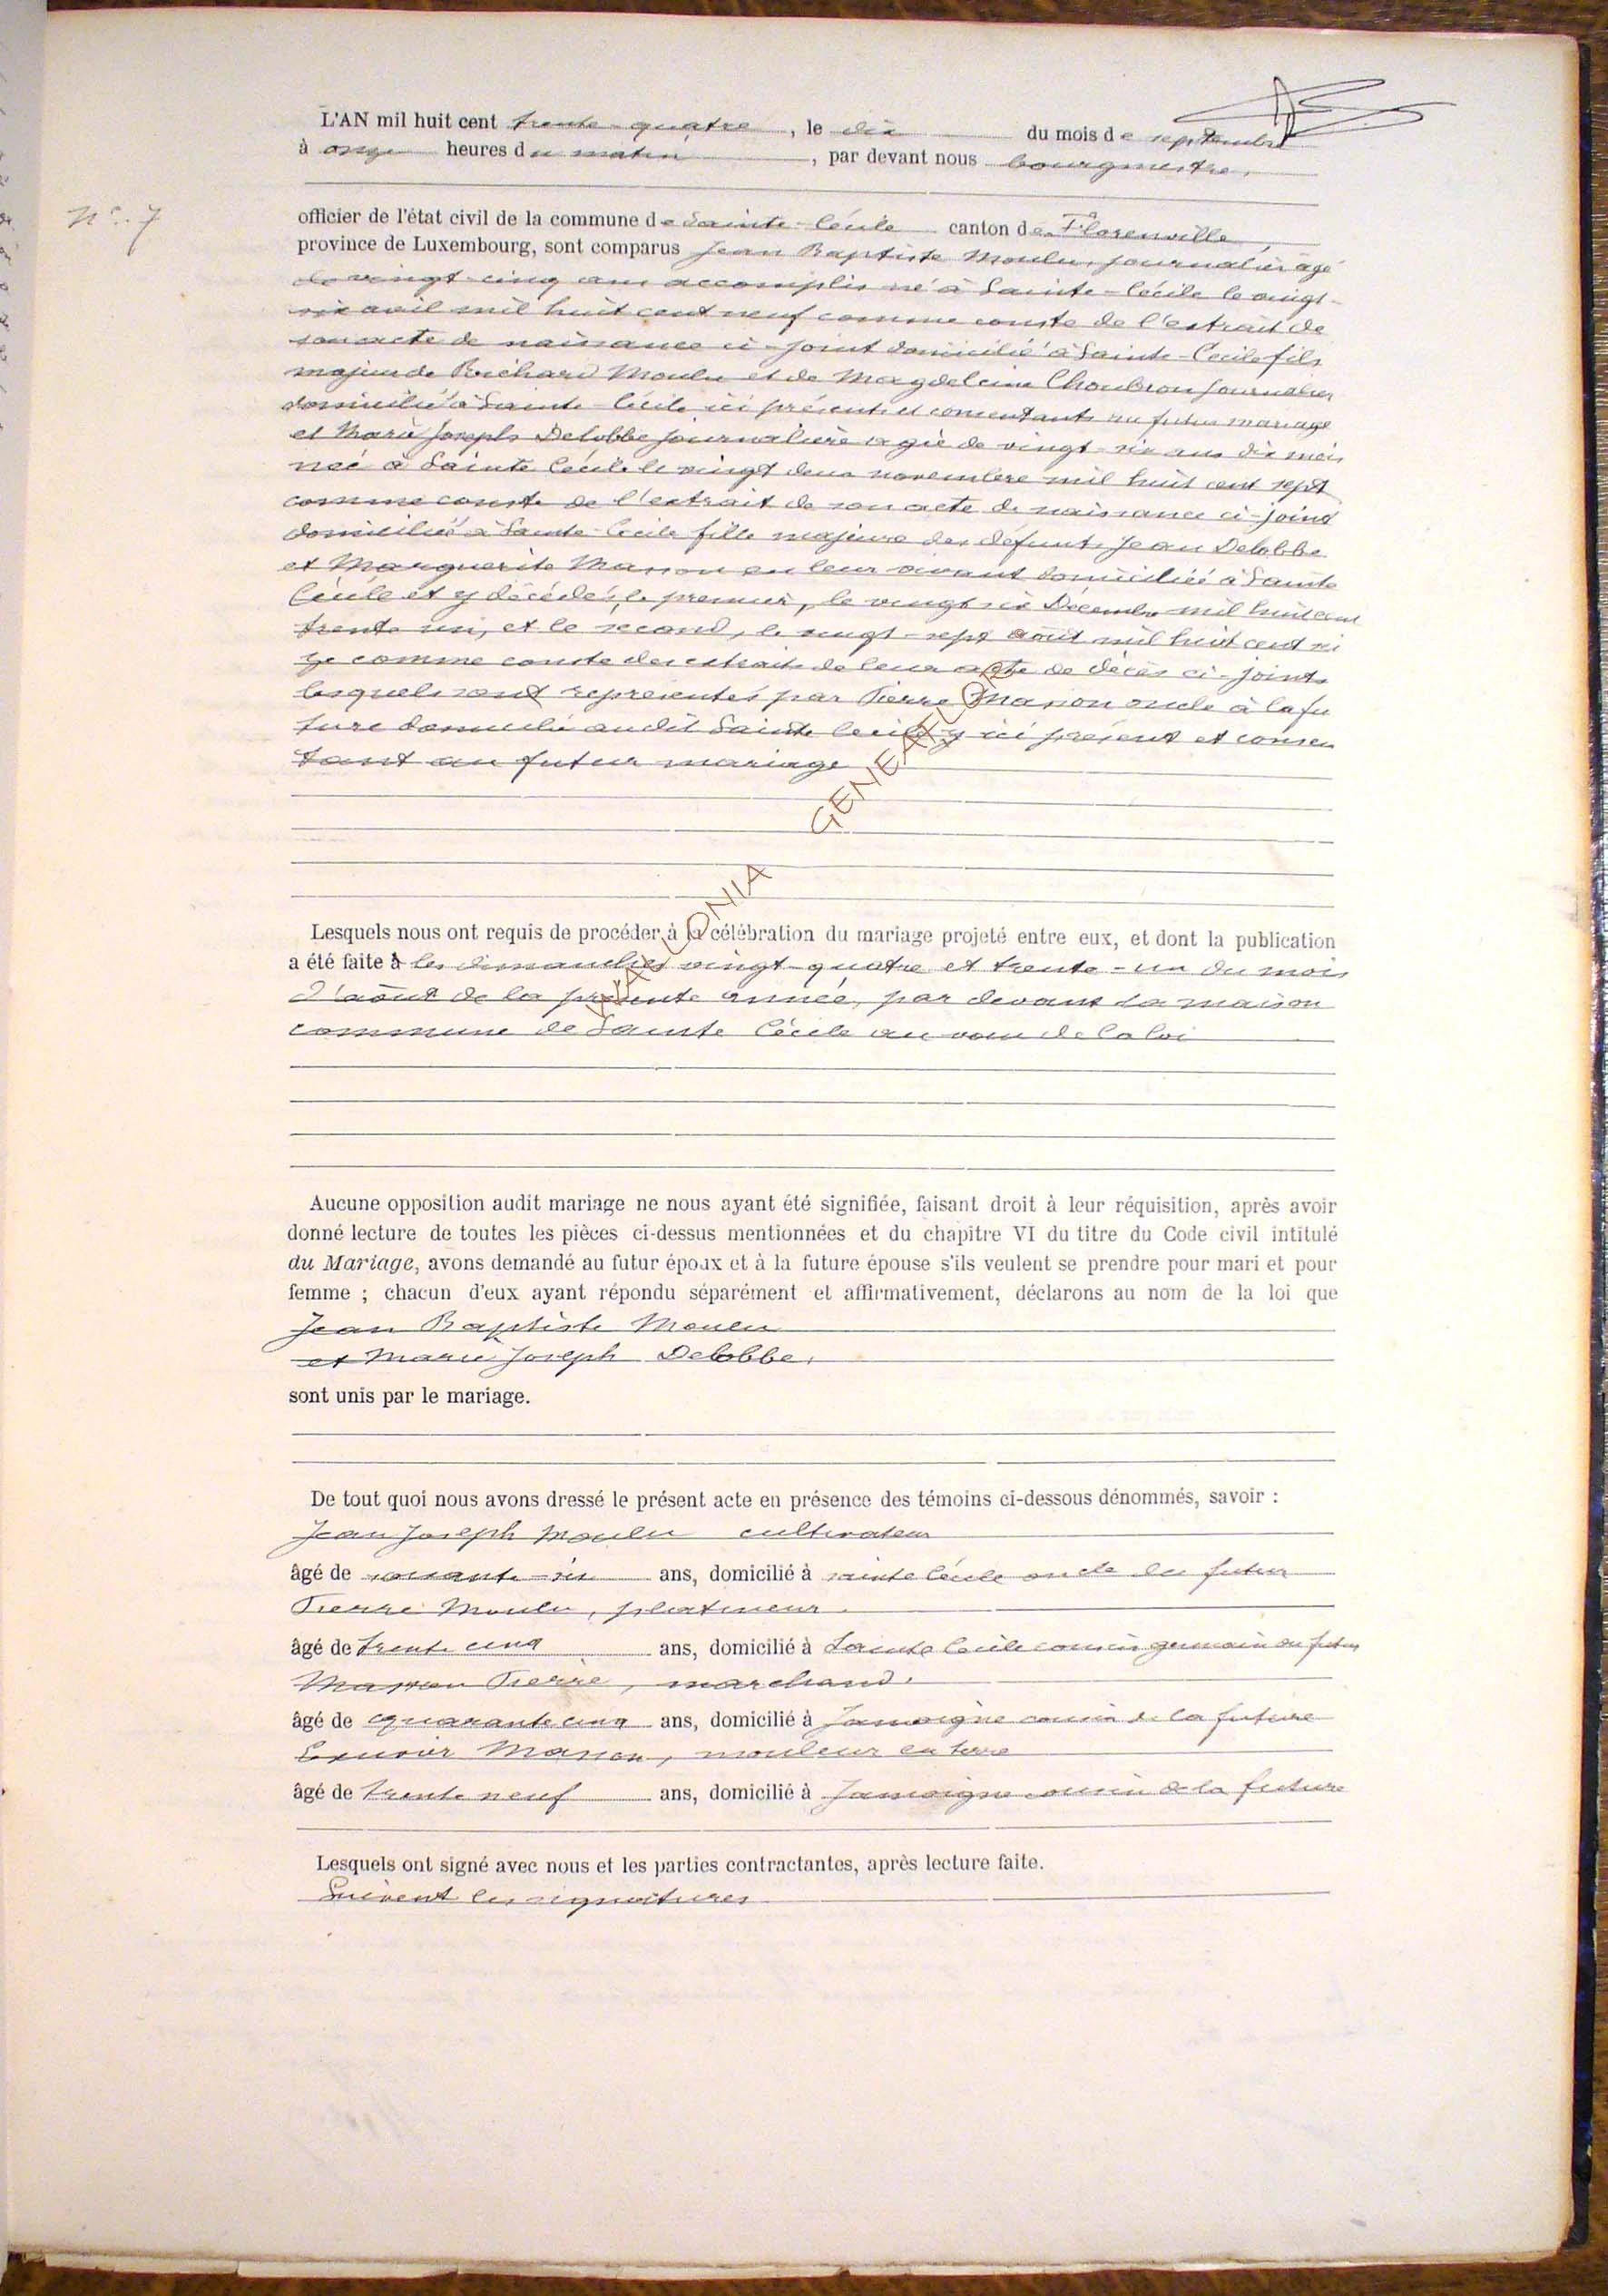 L'AN mil huit cent trente-quatre, le dix du mois de septembre
à onze heures du matin, par devant nous bourgmestre,
N°. 7
officier de l'état civil de la commune de Sainte-Cécile canton de Florenville,
province de Luxembourg, sont comparus Jean Baptiste Moulu, journalier âgé
de vingt-cinq ans accomplis né à Sainte-Cécile le vingt-
six avril mil huit cent neuf comme conste de l'extrait de
son acte de naissance ci-joint domicilié à Sainte-Cécile fils
majeur de Richard Moulu et de Magdeleine journalier
domicilié à Sainte-Cécile ici présents et consentants au futur mariage
et Marie Joseph Delobbe journalière agée de vingt-six ans dix mois
née à Sainte Cécile le vingt deux novembre mil huit cent sept
comme conste de l'extrait de son acte de naissance ci-joint
domiciliée à Sainte-Cécile fille majeure des défunts Jean Delobbe
et Marguerite Masson en leur vivant domiciliés à Sainte
Cécile et y décédés, le premier, le vingt six Décembre mil huit cent
trente un, et le second, le vingt-sept août mil huit cent
ze comme conste des extraits de leur acte de décès ci-joints
lesquels sont représentés par Pierre Masson oncle à la fu
ture domicilié audit Sainte Cécile y ici présent et consen
tant au futur mariage
WALLONIA GENEAFLOR
Lesquels nous ont requis de procéder à la célébration du mariage projeté entre eux, et dont la publication
a été faite à les dimanches vingt-quatre et trente-un du mois
d'août de la présente année, par devant la maison
commune de Sainte Cécile au vœu de la loi
Aucune opposition audit mariage ne nous ayant été signifiée, faisant droit à leur réquisition, après avoir
donné lecture de toutes les pièces ci-dessus mentionnées et du chapitre VI du titre du Code civil intitulé
du Mariage, avons demandé au futur époux et à la future épouse s'ils veulent se prendre pour mari et pour
femme ; chacun d'eux ayant répondu séparément et affirmativement, déclarons au nom de la loi que
Jean Baptiste Moulu
et Marie Joseph Delobbe,
sont unis par le mariage.
De tout quoi nous avons dressé le présent acte en présence des témoins ci-dessous dénommés, savoir :
Jean Joseph Moulu cultivateur
âgé de soixante-six ans, domicilié à sainte Cécile oncle du futur
Pierre Moulu, platineur.
âgé de trente cinq ans, domicilié à Sainte Cécile cousin germain du futur
Masson Pierre, marchand.
âgé de quarante cinq ans, domicilié à Jamoigne cousin de la future
Masson, mouleur en terre
âgé de trente neuf ans, domicilié à Jamoigne cousin de la future
Lesquels ont signé avec nous et les parties contractantes, après lecture faite.
Suivent les signatures